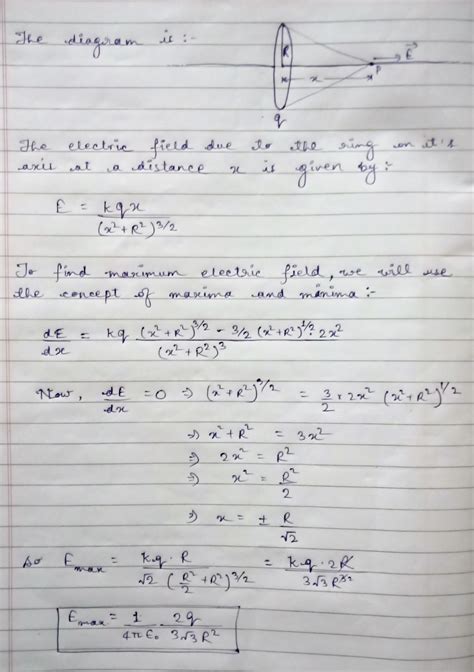 The diagram is :-
R
E
P
x
x
x
q
The electric field due to the ring on it's
axis at a distance x is given by :-
E = kqx / (x² + R²)^3/2
To find maximum electric field, we will use
the concept of maxima and minima :-
dE/dx = kq (x² + R²)^3/2 - 3/2 (x² + R²)^1/2 · 2x² / (x² + R²)^3
Now, dE/dx = 0 ⇒ (x² + R²)^3/2 = 3/2 × 2x² (x² + R²)^1/2
⇒ x² + R² = 3x²
⇒ 2x² = R²
⇒ x² = R²/2
⇒ x = ± R/√2
So E max = kq · R / √2 (R²/2 + R²)^3/2 = kq · 2R / 3√3 R^3/2
E max = 1/4πε₀ 2q/3√3 R²